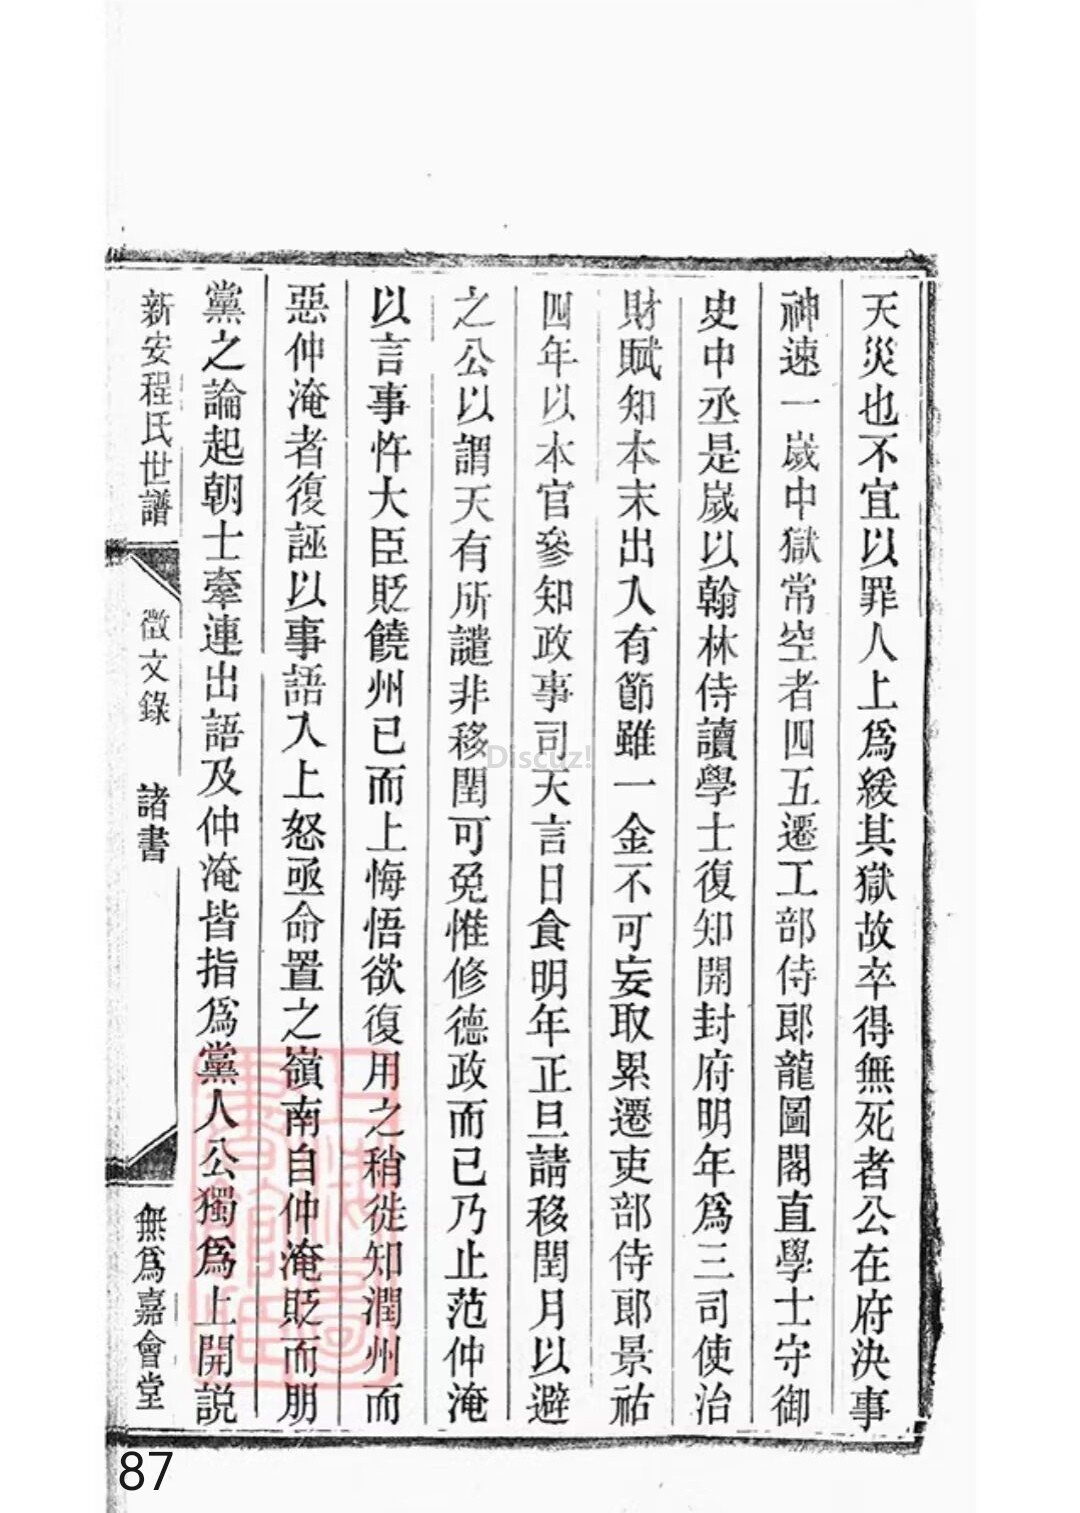 天災也不宜以罪人上爲緩其獄故卒得無死者公在府決事
神速一歲中獄常空者四五遷工部侍郎龍圖閣直學士守御
史中丞是歲以翰林侍讀學士復知開封府明年爲三司使治
財賦知本末出入有節雖一金不可妄取累遷吏部侍郎景祐
四年以本官參知政事司天言日食明年正旦請移閏月以避
之公以謂天有所譴非移閏可免惟修德政而已乃止范仲淹
以言事忤大臣貶饒州已而上悔悟欲復用之稍徙知潤州而
惡仲淹者復誣以事語入上怒亟命置之嶺南自仲淹貶而朋
黨之論起朝士牽連出語及仲淹皆指爲黨人公獨爲上開説
新安程氏世譜
徵文錄
諸書
無爲嘉會堂
Discuz!
87